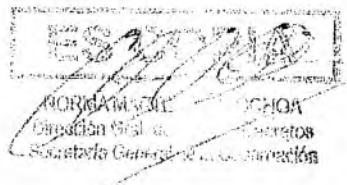 ES COPIA
NORMA OCHOA
Dirección Gral. de Decretos
Secretaría General de la Gobernación